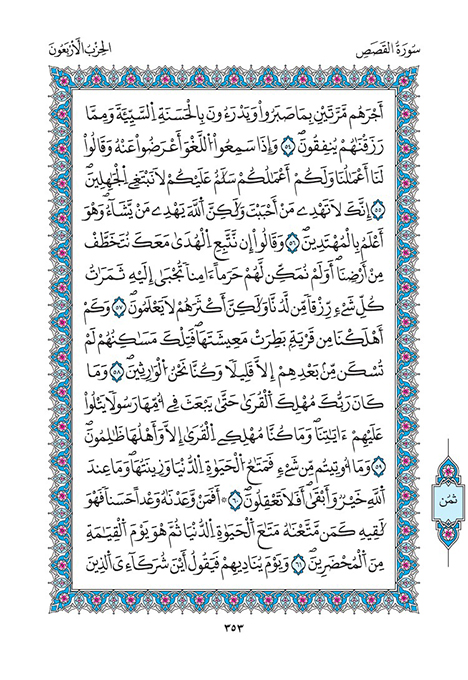 سُورَةُ الْقَصَصِ
الحِزْبُ الَارْبَعُونَ
أَجْرَهُم مَّرَّتَيْنِ بِمَا صَبَرُواْ وَيَدْرَءُونَ بِالْحَسَنَةِ اِ۬لسَّيِّئَةَ وَمِمَّا
رَزَقْنَٰهُمْ يُنفِقُونَۖ ٥٤ وَإِذَا سَمِعُواْ اُ۬للَّغْوَ أَعْرَضُواْ عَنْهُ وَقَالُواْ
لَنَا أَعْمَٰلُنَا وَلَكُمُۥٓ أَعْمَٰلُكُمْ سَلَٰمٌ عَلَيْكُمْ لَا نَبْتَغِے اِ۬لْجَٰهِلِينَۖ
٥٥ إِنَّكَ لَا تَهْدِے مَنَ اَحْبَبْتَ وَلَٰكِنَّ اَ۬للَّهَ يَهْدِے مَنْ يَّشَآءُۖ وَهُوَ
أَعْلَمُ بِالْمُهْتَدِينَۖ ٥٦ وَقَالُوٓاْ إِن نَّتَّبِعِ اِ۬لْهُدَىٰ مَعَكَ نُتَخَطَّفْ
مِنَ اَرْضِنَاۖ أَوَلَمْ نُمَكِّن لَّهُمْ حَرَماً اٰمِناً تُجْبَىٰٓ إِلَيْهِ ثَمَرَٰتُ
كُلِّ شَےْءٖ رِّزْقاً مِّن لَّدُنَّا وَلَٰكِنَّ أَكْثَرَهُمْ لَا يَعْلَمُونَۖ ٥٧ وَكَمَ
اَهْلَكْنَا مِن قَرْيَةِۢ بَطِرَتْ مَعِيشَتَهَاۖ فَتِلْكَ مَسَٰكِنُهُمْ لَمْ
تُسْكَن مِّنۢ بَعْدِهِمُۥٓ إِلَّا قَلِيلاً وَكُنَّا نَحْنُ اُ۬لْوَٰرِثِينَۖ ٥٨ وَمَا
كَانَ رَبُّكَ مُهْلِكَ اَ۬لْقُرَىٰ حَتَّىٰ يَبْعَثَ فِےٓ أُمِّهَا رَسُولاً يَتْلُواْ
عَلَيْهِمُۥٓ ءَايَٰتِنَاۖ وَمَا كُنَّا مُهْلِكِے اِ۬لْقُرَىٰٓ إِلَّا وَأَهْلُهَا ظَٰلِمُونَۖ
٥٩ وَمَآ أُوتِيتُم مِّن شَےْءٖ فَمَتَٰعُ اُ۬لْحَيَوٰةِ اِ۬لدُّنْيَا وَزِينَتُهَاۖ وَمَا عِندَ
اَ۬للَّهِ خَيْرٞ وَأَبْقَىٰٓۖ أَفَلَا تَعْقِلُونَۖ ٦٠ ۞ أَفَمَنْ وَّعَدْنَٰهُ وَعْداً حَسَناً فَهُوَ
لَٰقِيهِ كَمَن مَّتَّعْنَٰهُ مَتَٰعَ اَ۬لْحَيَوٰةِ اِ۬لدُّنْيَا ثُمَّ هُوَ يَوْمَ اَ۬لْقِيَٰمَةِ
مِنَ اَ۬لْمُحْضَرِينَۖ ٦١ وَيَوْمَ يُنَادِيهِمْ فَيَقُولُ أَيْنَ شُرَكَآءِيَ اَ۬لذِينَ
ثُمُن
٣٥٣